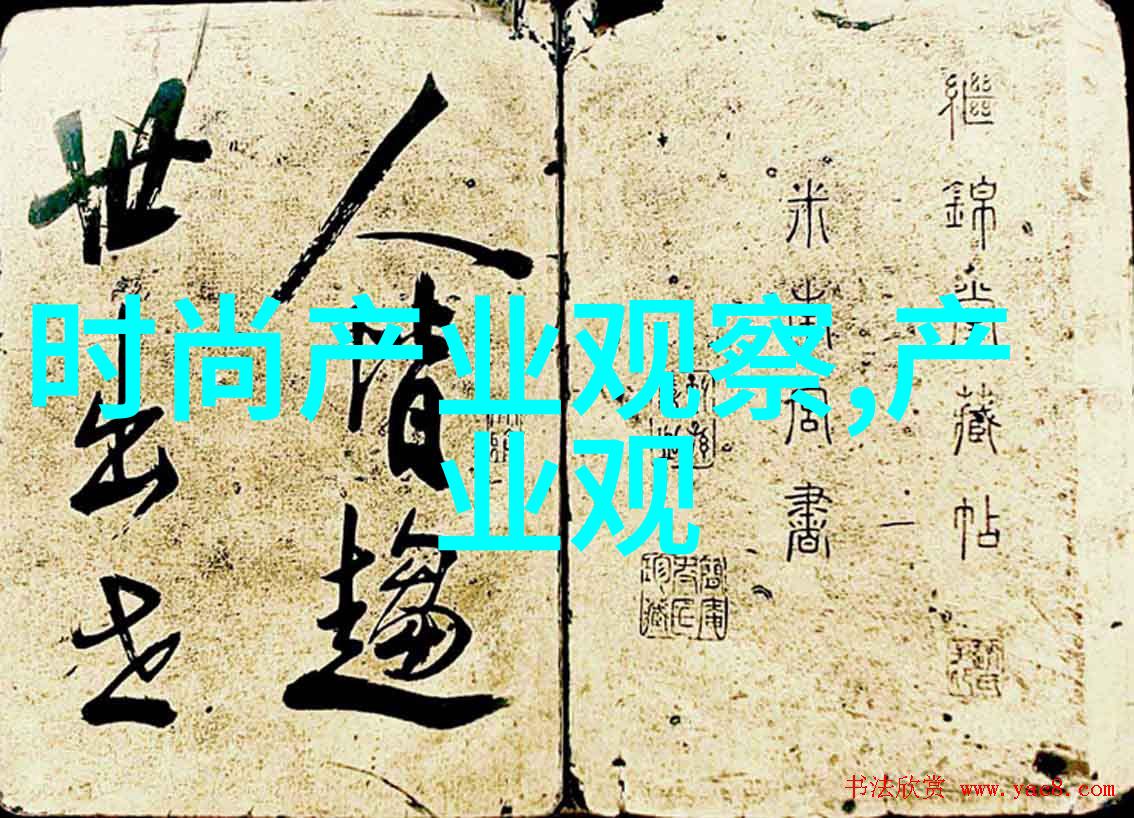 时尚产业观察,产
业观
繼錦堂藏帖
米南宮書 一
人情趨
世出世
书法欣赏 www.yac8.com